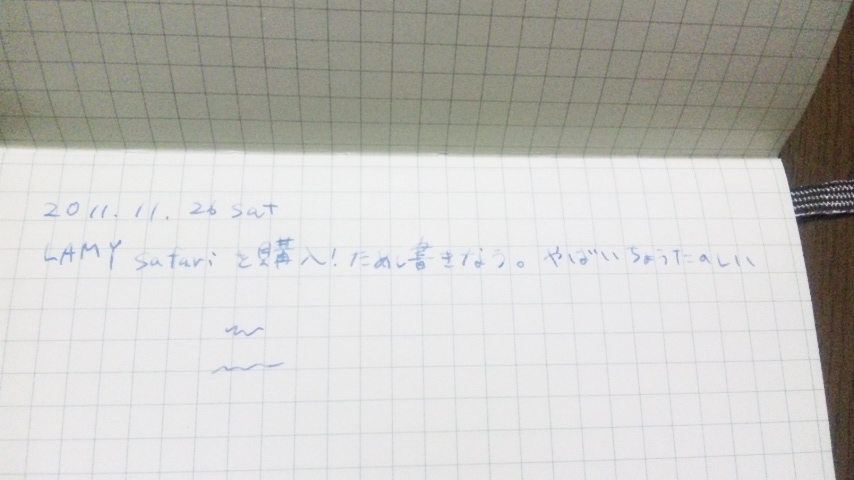 2011.11.26 sat
LAMY safari を購入!ためし書きなう。やばいちょうたのしい